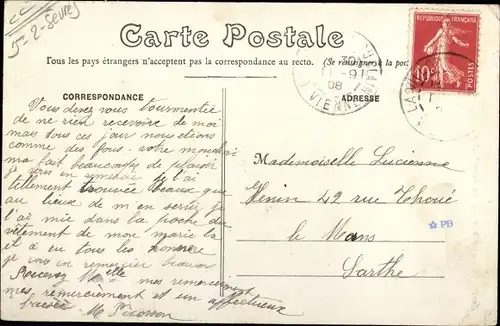 5= 2-Sevres
Carte Postale
Tous les pays étrangers n'acceptent pas la correspondance au recto. (Se renseigner à la pos
RÉPUBLIQUE FRANÇAISE
10c
POSTES
CORRESPONDANCE
ADRESSE
VIENNE
08
Vous devez vous tourmentée
de ne rien recevoire de moi
mais tous ces jour nous étions
comme des fous. votre mouchoir
ma fait beaucoup de plaisir
je vous en remercie je l'ai
tellement trouvée beaux que
au lieux de m'en servir je
l'ai mie dans la poche du
vêtement de mon marie la
il à eu tous les honnere
je vous en remercier beaucou
Recevez Melle mes remerciment
mes remerciement et un affectueux
Me Picorron
Mademoiselle Lucienne
Henin 42 rue Thoré
le Mans
Sarthe
PB